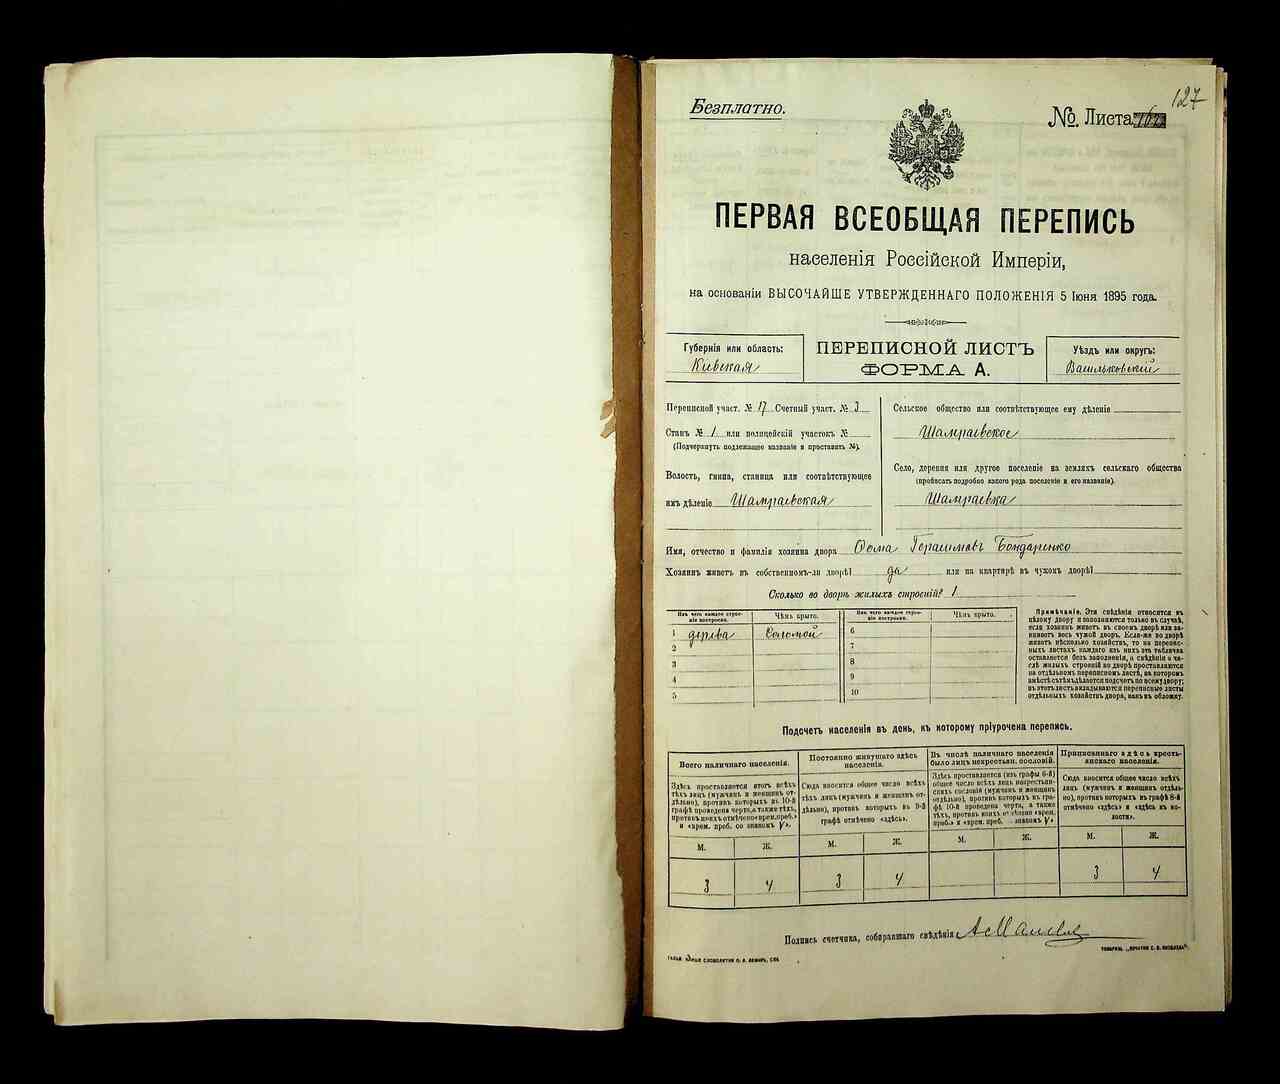 127
Безплатно.
№ Листа
ПЕРВАЯ ВСЕОБЩАЯ ПЕРЕПИСЬ
населенія Россійской Имперіи,
на основаніи ВЫСОЧАЙШЕ УТВЕРЖДЕННАГО ПОЛОЖЕНІЯ 5 Іюня 1895 года.
Губернія или область:
Кіевская
ПЕРЕПИСНОЙ ЛИСТЪ
ФОРМА А.
Уѣздъ или округъ:
Васильковскій
Переписной участ. № 17 Счетный участ. № 3
Станъ № 1 или полицейскій участокъ №
(Подчеркнуть подлежащее названіе и проставить №).
Волость, гмина, станица или соотвѣтствующее
имъ дѣленіе Шамраевская
Сельское общество или соотвѣтствующее ему дѣленіе
Шамраевское
Село, деревня или другое поселеніе на земляхъ сельскаго общества
(прописать подробно какого рода поселеніе и его названіе).
Шамраевка
Имя, отчество и фамилія хозяина двора Фома Герасимовъ Бондаренко
Хозяинъ живетъ въ собственномъ-ли дворѣ? да или на квартирѣ въ чужомъ дворѣ?
Сколько во дворѣ жилыхъ строеній? 1
Изъ чего каждое строе-
ніе построено.
Чѣмъ крыто.
1 дерева Соломой
2
3
4
5
Изъ чего каждое строе-
ніе построено.
Чѣмъ крыто.
6
7
8
9
10
Примѣчаніе. Эти свѣдѣнія относятся къ
цѣлому двору и заполняются только въ случаѣ,
если хозяинъ живетъ въ своемъ дворѣ или за-
нимаетъ весь чужой дворъ. Если-же во дворѣ
живетъ нѣсколько хозяйствъ, то на перепис-
ныхъ листахъ каждаго изъ нихъ эта табличка
оставляется безъ заполненія, а свѣдѣнія о чи-
слѣ жилыхъ строеній во дворѣ проставляются
на отдѣльномъ переписномъ листѣ, на которомъ
вмѣстѣ съ тѣмъ дѣлается подсчетъ по всему двору;
въ этотъ листъ вкладываются переписные листы
отдѣльныхъ хозяйствъ двора, какъ въ обложку.
Подсчетъ населенія въ день, къ которому пріурочена перепись.
Всего наличнаго населенія.
Здѣсь проставляется итогъ всѣхъ
тѣхъ лицъ (мужчинъ и женщинъ от-
дѣльно), противъ которыхъ въ 10-й
графѣ проведена черта, а также тѣхъ,
противъ коихъ отмѣчено «врем. преб.»
и «врем. преб. со знакомъ V».
М. Ж.
3 4
Постоянно живущаго здѣсь
населенія.
Сюда вносится общее число всѣхъ
тѣхъ лицъ (мужчинъ и женщинъ от-
дѣльно), противъ которыхъ въ 9-й
графѣ отмѣчено «здѣсь».
М. Ж.
3 4
Въ числѣ наличнаго населенія
было лицъ некрестьян. сословій.
Здѣсь проставляется (изъ графы 6-й)
общее число всѣхъ лицъ некрестьян-
скихъ сословій (мужчинъ и женщинъ
отдѣльно), противъ которыхъ въ гра-
фѣ 10-й проведена черта, а также
тѣхъ, противъ коихъ отмѣчено «врем.
преб.» и «врем. преб. со знакомъ V».
М. Ж.
Приписаннаго здѣсь кресть-
янскаго населенія.
Сюда вносится общее число всѣхъ
лицъ (мужчинъ и женщинъ отдѣль-
но), противъ которыхъ въ графѣ 8-й
отмѣчено «здѣсь» и «здѣсь въ во-
лости».
М. Ж.
3 4
Подпись счетчика, собиравшаго свѣдѣнія
СЛОВОЛИТНИ О. И. ЛЕМАНЪ, СПБ.
ТОВАРИЩ. „ПЕЧАТНЯ С. П. ЯКОВЛЕВА“.